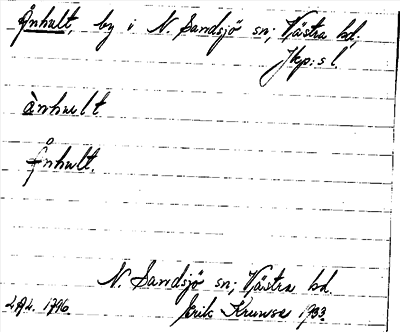 Ånhult, by i N. Sandsjö sn; Västra hd,
Jkp:s l.
ànhult
Ånhult.
N. Sandsjö sn; Västra hd.
LAL. 1796. Erik Kruuse 1933